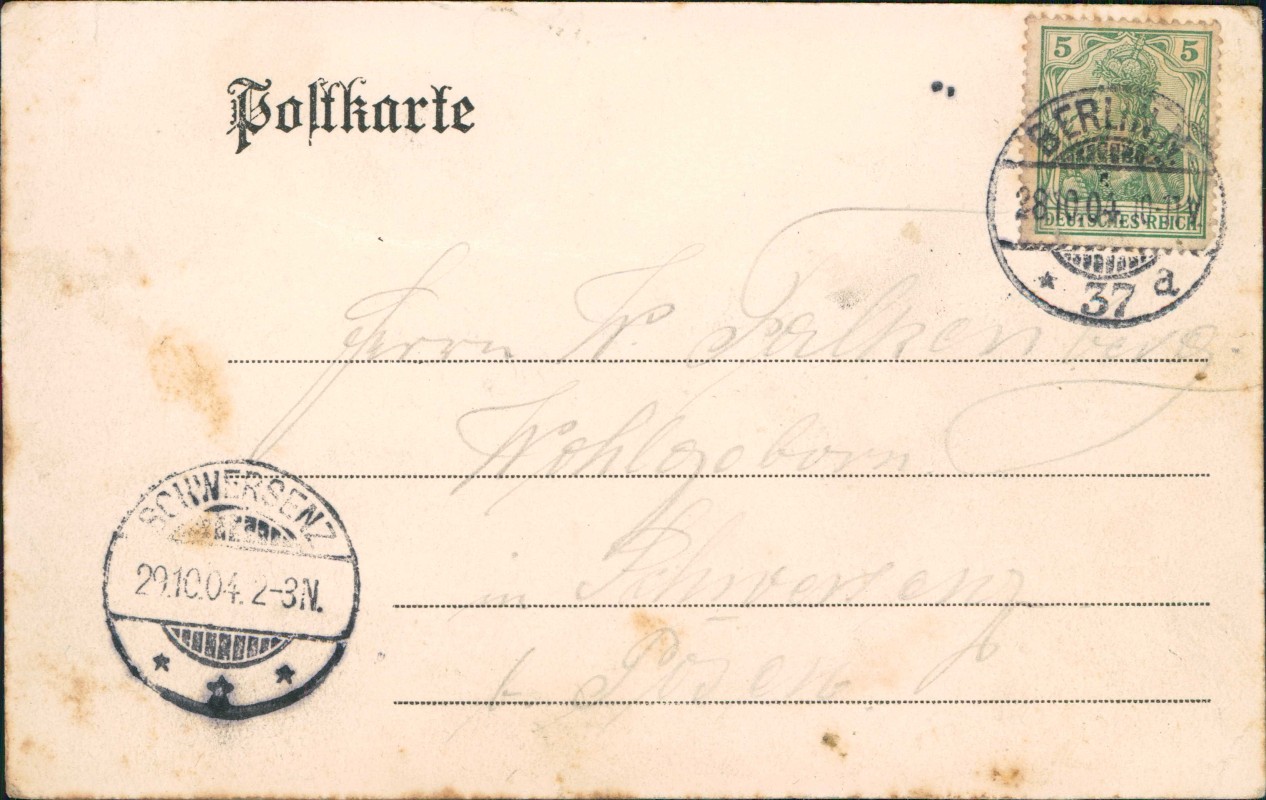 Postkarte
5 5
DEUTSCHES REICH
BERLIN
28.10.04. 10-11V
* 37 a
Herrn W. Falkenberg.
Wohlgeborn
in Schwersenz
Posen
SCHWERSENZ
29.10.04. 2-3N.
* * *